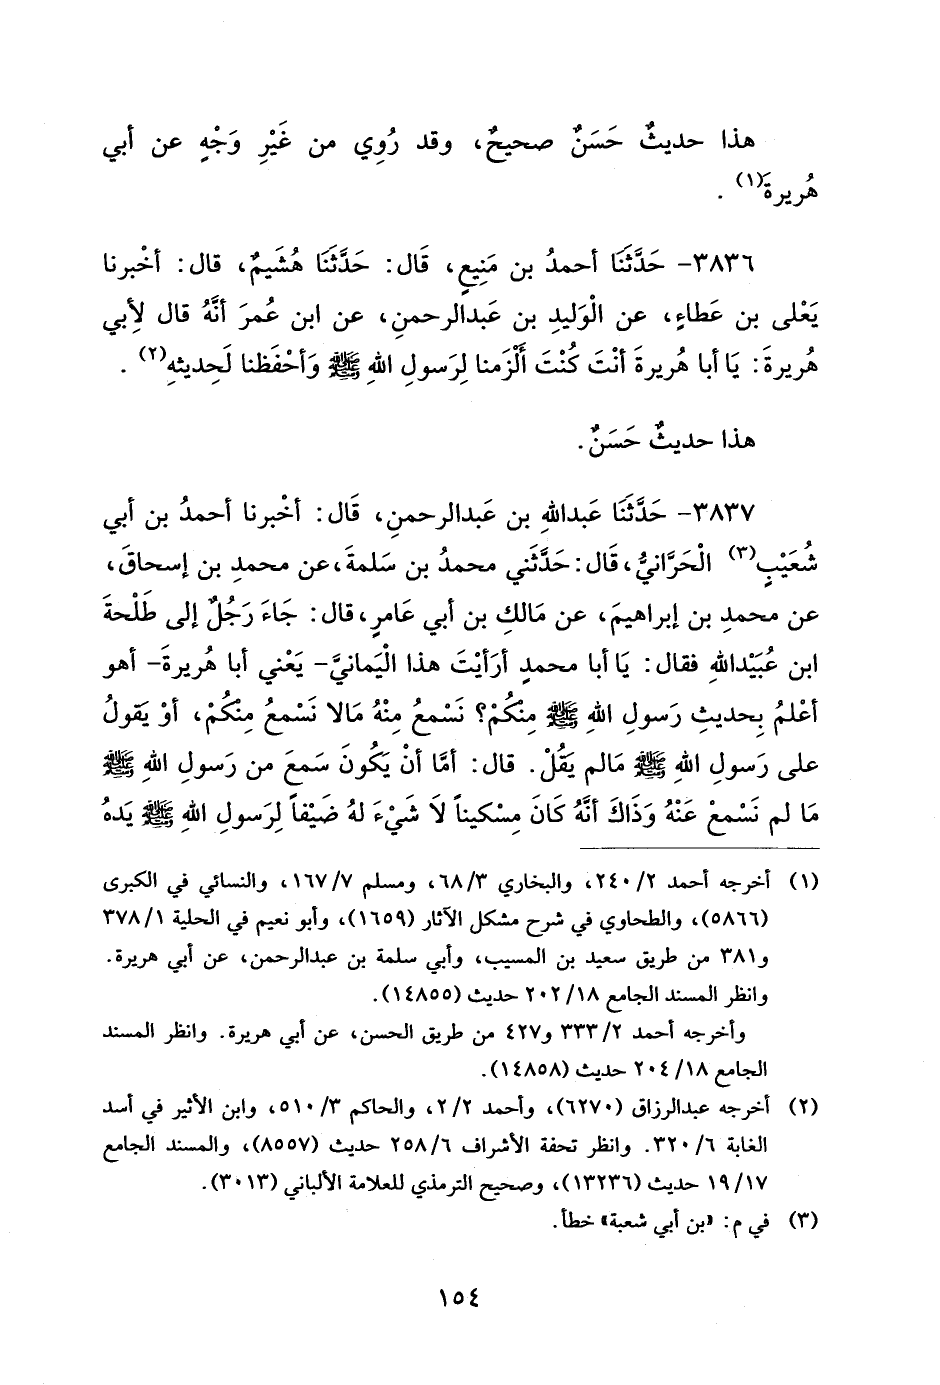 هذا حديثٌ حَسَنٌ صحيحٌ، وقد رُوِي من غَيْرِ وَجْهٍ عن أبي
هُريرةَ(١) .
٣٨٣٦- حَدَّثَنَا أحمدُ بن مَنِيعٍ، قَال: حَدَّثَنَا هُشَيمٌ، قال: أخْبرنا
يَعْلى بن عَطاءٍ، عن الْوَليدِ بن عَبدالرحمنِ، عن ابن عُمرَ أنَّهُ قال لِأبي
هُريرةَ: يَا أبا هُريرةَ أنْتَ كُنْتَ أَلْزَمنا لِرَسولِ اللهِ ﷺ وَأحْفَظنا لَحِديثهِ(٢) .
هذا حديثٌ حَسَنٌ.
٣٨٣٧- حَدَّثَنَا عَبداللهِ بن عَبدالرحمنِ، قَال: أخْبرنا أحمدُ بن أبي
شُعَيْبٍ(٣) الْحَرَّانيُّ، قَال: حَدَّثَني محمدُ بن سَلمةَ، عن محمدِ بن إسحاقَ،
عن محمدِ بن إبراهيمَ، عن مَالكِ بن أبي عَامرٍ، قال: جَاءَ رَجُلٌ إلى طَلْحةَ
ابن عُبَيْداللهِ فقال: يَا أبا محمدٍ أرَأيْتَ هذا الْيَمانيَّ- يَعْني أبا هُريرةَ- أهو
أعْلمُ بِحديثِ رَسولِ اللهِ ﷺ مِنكُمْ؟ نَسْمعُ مِنْهُ مَالا نَسْمعُ مِنْكُمْ، أوْ يَقولُ
على رَسولِ اللهِ ﷺ مَالم يَقُلْ. قال: أمَّا أنْ يَكُونَ سَمعَ من رَسولِ اللهِ ﷺ
مَا لم نَسْمعْ عَنْهُ وَذَاكَ أنَّهُ كَانَ مِسْكيناً لاَ شَيْءَ لهُ ضَيْفاً لِرَسولِ اللهِ ﷺ يَدهُ
(١) أخرجه أحمد ٢/ ٢٤٠، والبخاري ٣/ ٦٨، ومسلم ٧/ ١٦٧، والنسائي في الكبرى
(٥٨٦٦)، والطحاوي في شرح مشكل الآثار (١٦٥٩)، وأبو نعيم في الحلية ١/ ٣٧٨
و٣٨١ من طريق سعيد بن المسيب، وأبي سلمة بن عبدالرحمن، عن أبي هريرة.
وانظر المسند الجامع ١٨/ ٢٠٢ حديث (١٤٨٥٥).
وأخرجه أحمد ٢/ ٣٣٣ و٤٢٧ من طريق الحسن، عن أبي هريرة. وانظر المسند
الجامع ١٨/ ٢٠٤ حديث (١٤٨٥٨).
(٢) أخرجه عبدالرزاق (٦٢٧٠)، وأحمد ٢/ ٢، والحاكم ٣/ ٥١٠، وابن الأثير في أسد
الغابة ٦/ ٣٢٠. وانظر تحفة الأشراف ٦/ ٢٥٨ حديث (٨٥٥٧)، والمسند الجامع
١٧/ ١٩ حديث (١٣٢٣٦)، وصحيح الترمذي للعلامة الألباني (٣٠١٣).
(٣) في م: «بن أبي شعبة» خطأ.
١٥٤